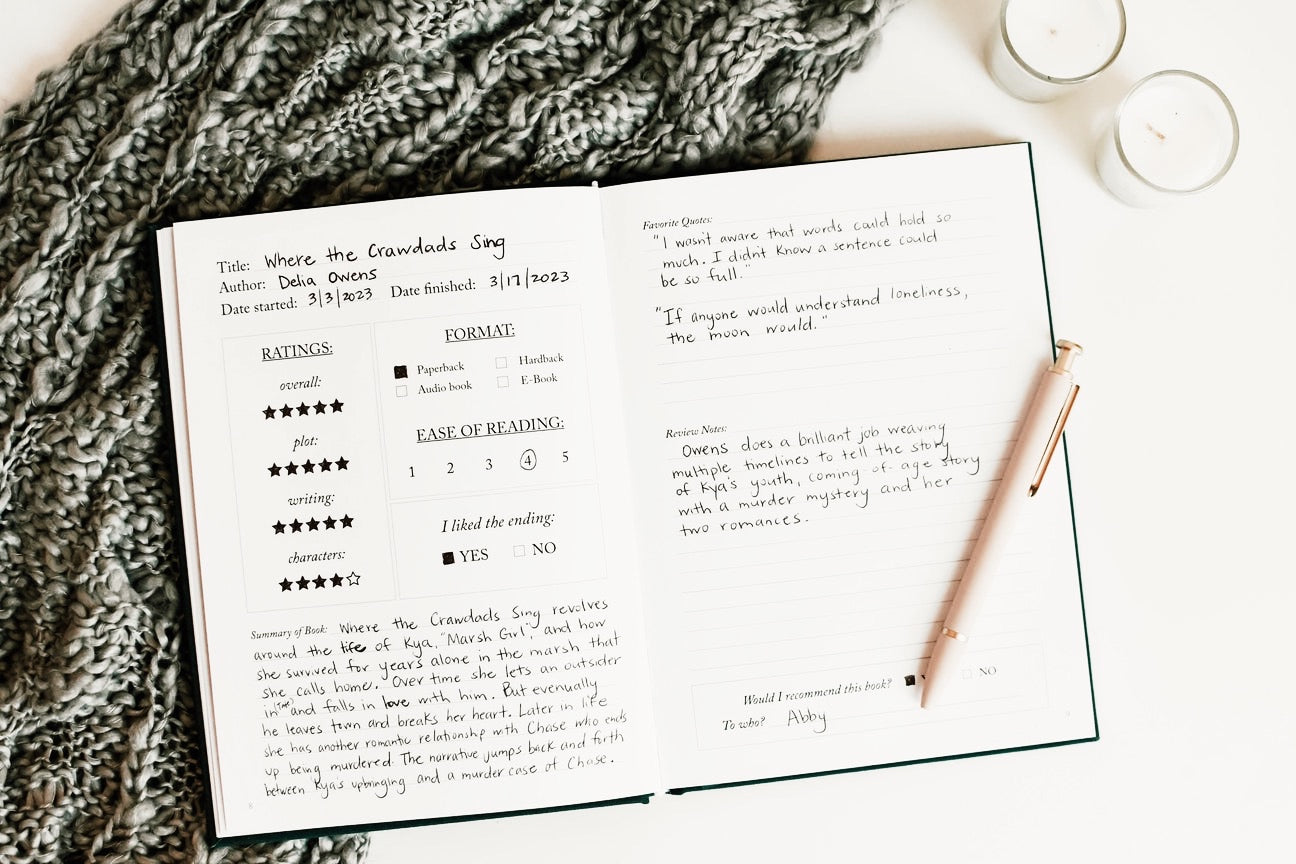 Title: Where the Crawdads Sing
Author: Delia Owens
Date started: 3/3/2023 Date finished: 3/17/2023
RATINGS:
overall:
★★★★★
plot:
★★★★★
writing:
★★★★★
characters:
★★★★☆
FORMAT:
■ Paperback □ Hardback
□ Audio book □ E-Book
EASE OF READING:
1 2 3 4 5
I liked the ending:
■ YES □ NO
Summary of Book: Where the Crawdads Sing revolves
around the life of Kya, "Marsh Girl", and how
she survived for years alone in the marsh that
she calls home. Over time she lets an outsider
in (Tate) and falls in love with him. But evenually
he leaves town and breaks her heart. Later in life
she has another romantic relationship with Chase who ends
up being murdered. The narrative jumps back and forth
between Kya's upbringing and a murder case of Chase.
8
Favorite Quotes:
"I wasn't aware that words could hold so
much. I didn't know a sentence could
be so full."
"If anyone would understand loneliness,
the moon would."
Review Notes:
Owens does a brilliant job weaving
multiple timelines to tell the story
of Kya's youth, coming-of-age story
with a murder mystery and her
two romances.
Would I recommend this book? ■ □ NO
To who? Abby
9